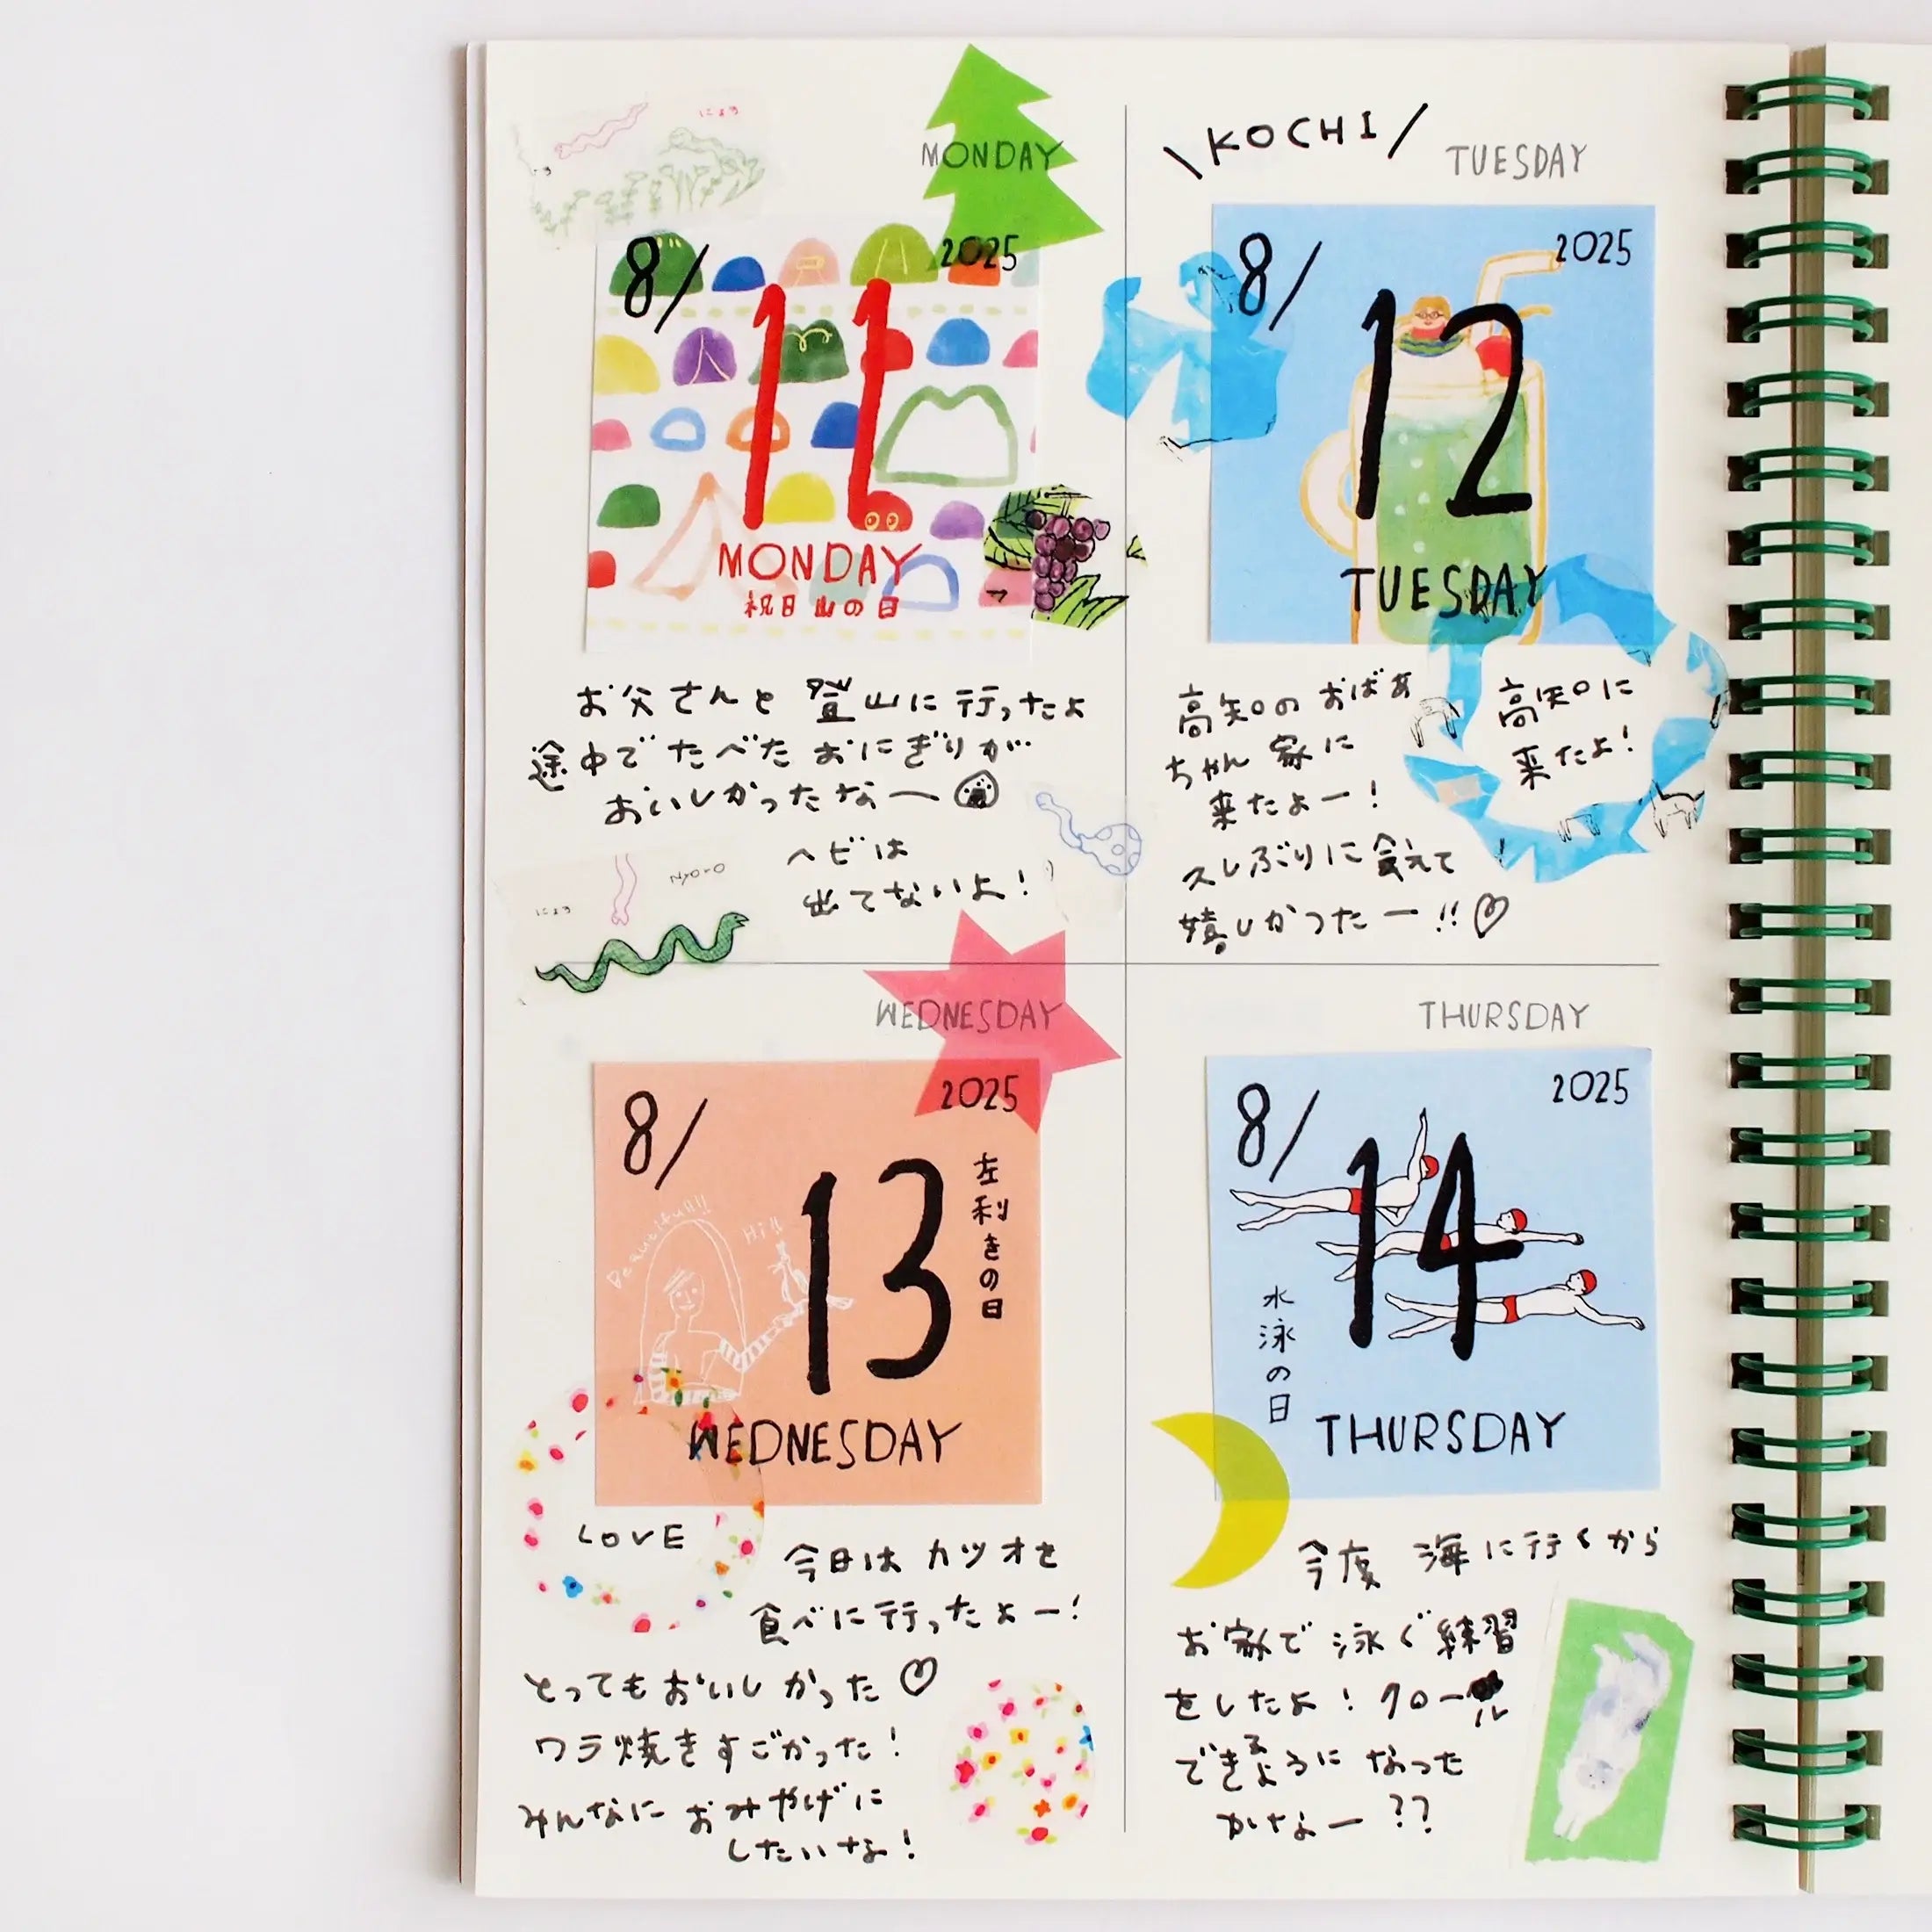 にょろ
MONDAY
8/
2025
11
MONDAY
祝日 山の日
お父さんと 登山に行ったよ
途中で たべた おにぎりが
おいしかったなー
ヘビは
出てないよ!
NYORO
にょろ
\KOCHI/
TUESDAY
8/
2025
12
TUESDAY
高知のおばあ
ちゃん家に
来たよー!
久しぶりに会えて
嬉しかったー!!♡
高知に
来たよ!
WEDNESDAY
8/
2025
13
左利きの日
Beautiful!!
Hi!!
WEDNESDAY
LOVE
今日は カツオを
食べに行ったよー!
とってもおいしかった♡
ワラ焼きすごかった!
みんなに おみやげに
したいなぁ!
THURSDAY
8/
2025
14
水泳の日
THURSDAY
今度 海に行くから
お家で泳ぐ練習
をしたよ! クロール
できるように なった
かなぁー??